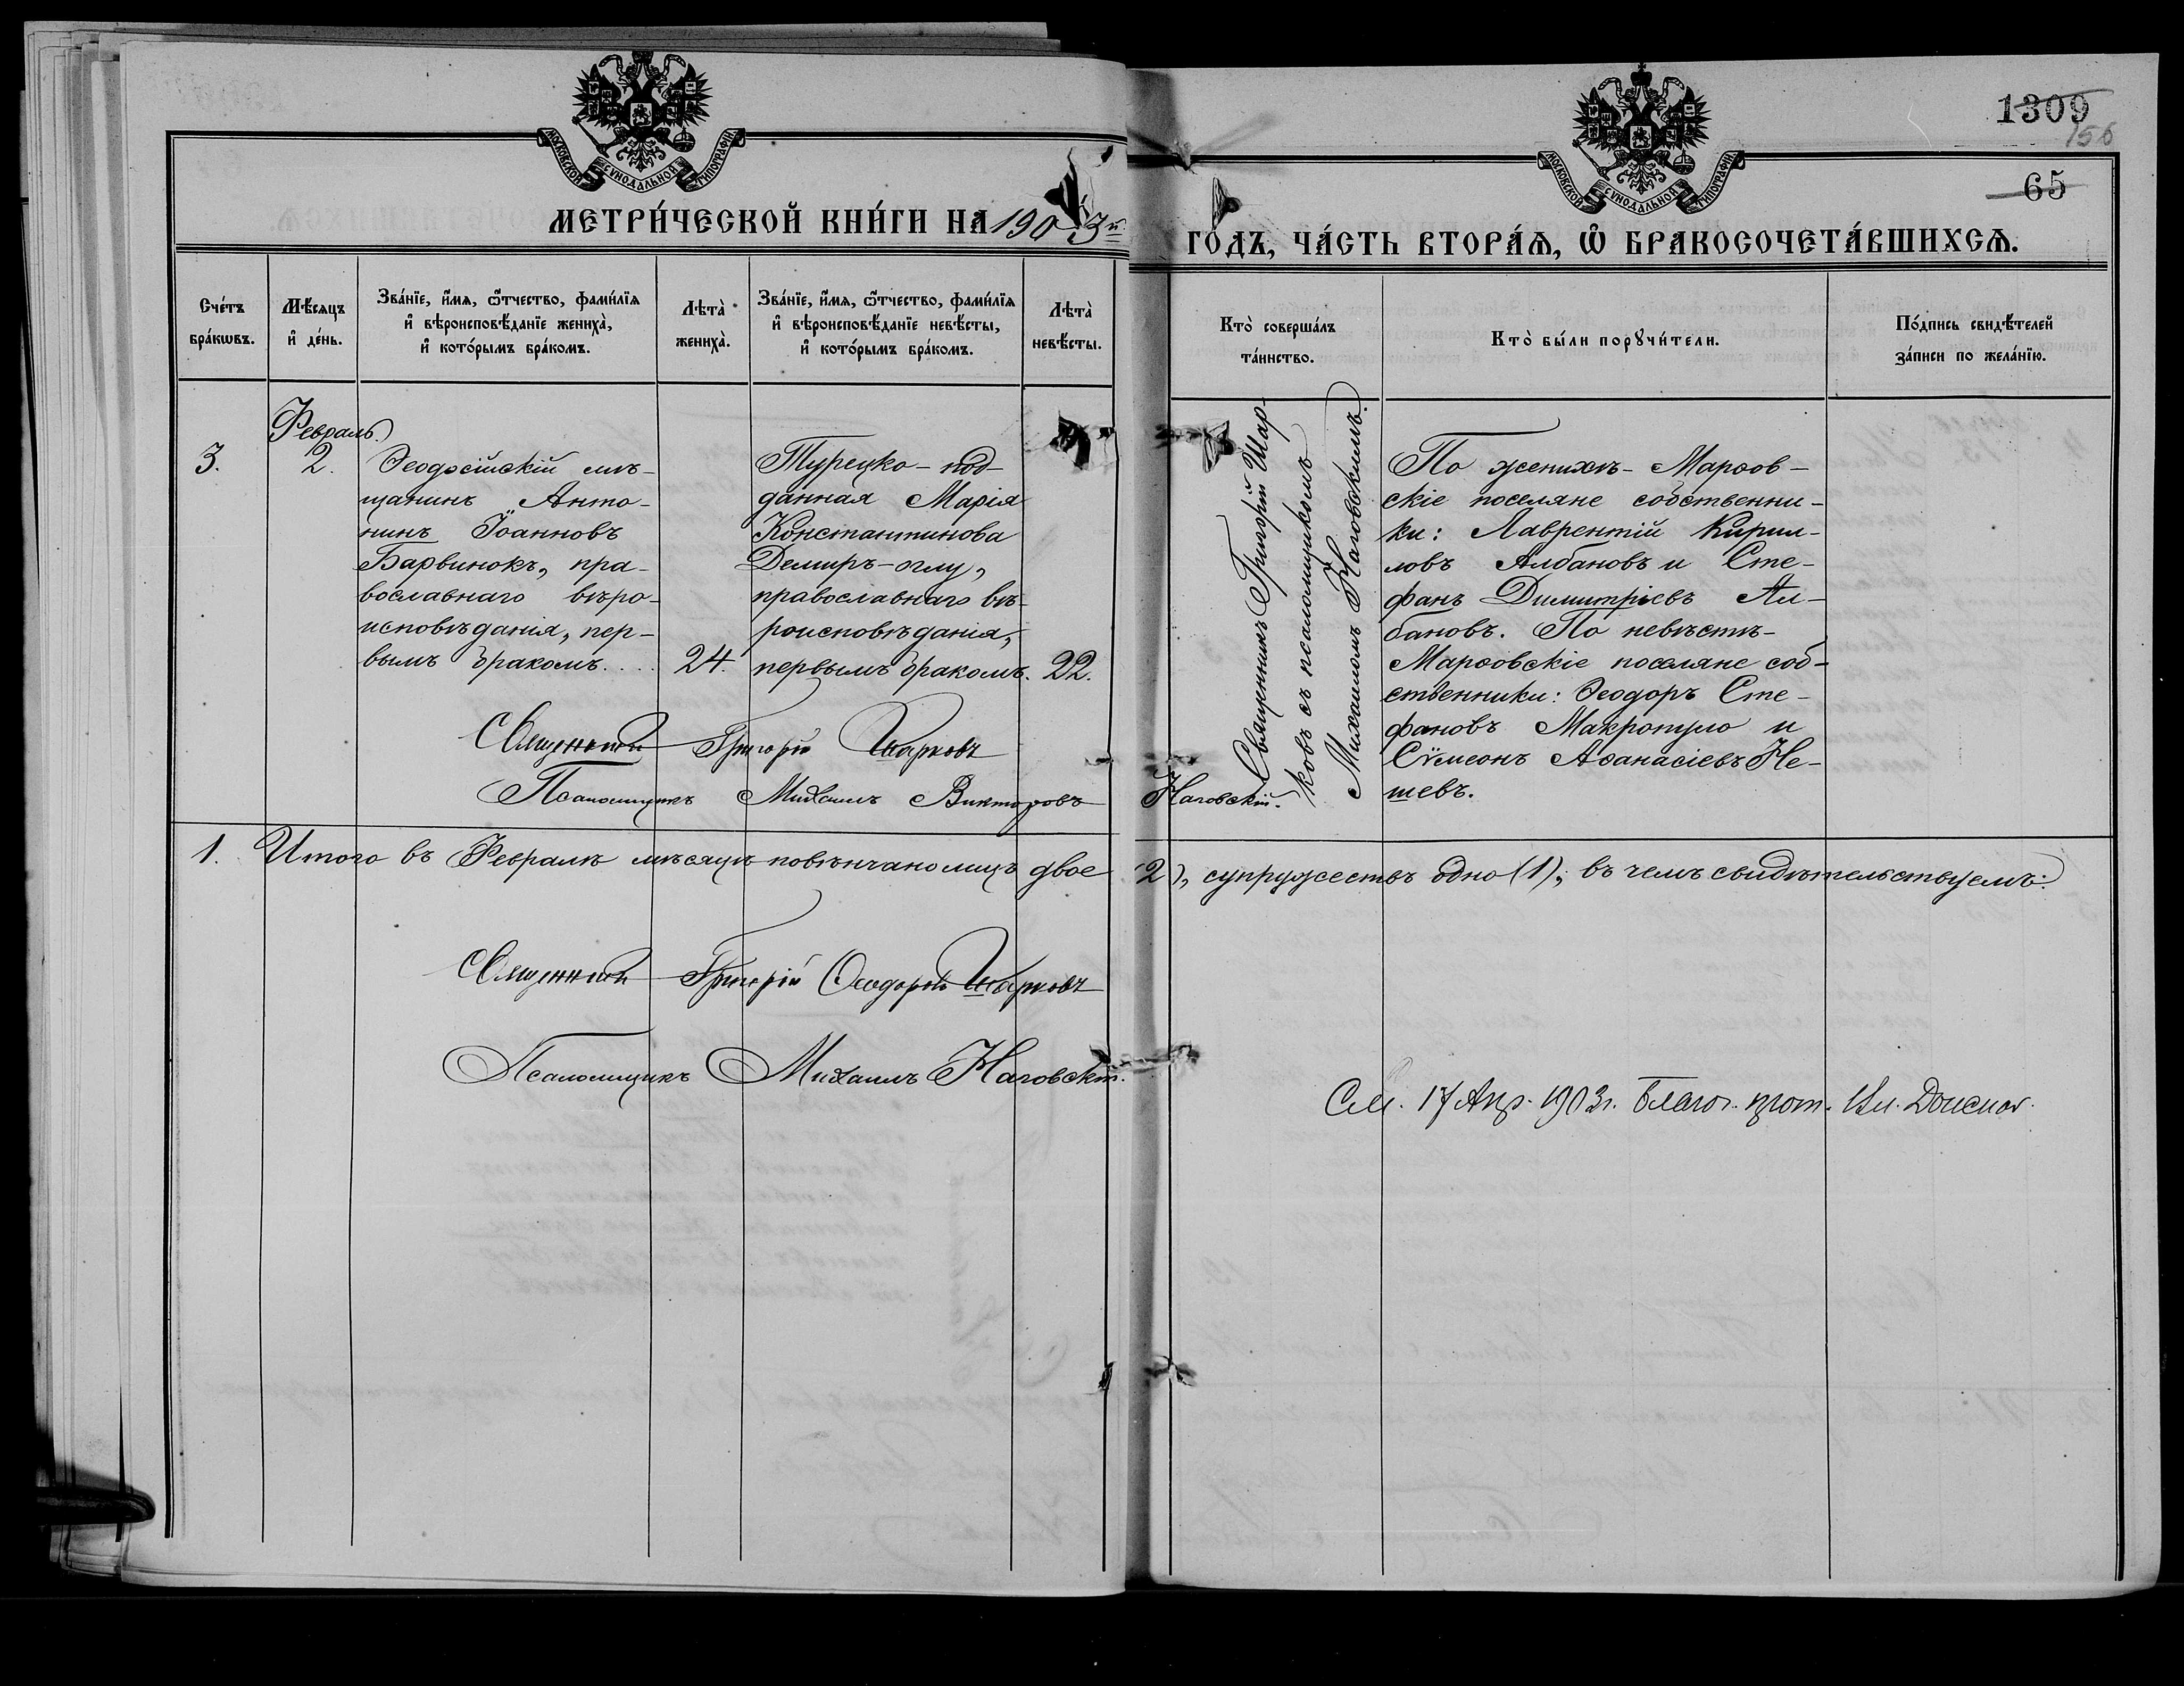 1309
156
65
МОСКОВСКОЙ СѴНОДАЛЬНОЙ ТИПОГРАФІИ
МОСКОВСКОЙ СѴНОДАЛЬНОЙ ТИПОГРАФІИ
МЕТРИ́ЧЕСКОЙ КНИ́ГИ НА 1903й
ГО́ДЪ, ЧА́СТЬ ВТОРА́Ѧ, Ѽ БРАКОСОЧЕТА́ВШИХСѦ.
Сче́тъ
бра́кѡвъ.
Мѣ́сѧцъ
и҆ де́нь.
Зва́нїе, и҆́мѧ, ѻ҆́тчество, фами́лїѧ
и҆ вѣроисповѣ́данїе жениха̀,
и҆ кото́рымъ бра́комъ.
Лѣта̀
жениха̀.
Зва́нїе, и҆́мѧ, ѻ҆́тчество, фами́лїѧ
и҆ вѣроисповѣ́данїе невѣ́сты,
и҆ кото́рымъ бра́комъ.
Лѣта̀
невѣ́сты.
Кто̀ соверша́лъ
та́инство.
Кто̀ бы́ли порꙋчи́тели.
По́дпись свидѣ́телей
за́писи по жела́нїю.
3.
Февраль.
2.
Ѳеодосійскій мѣ-
щанинъ Анто-
нинъ Іоанновъ
Барвинокъ, пра-
вославнаго вѣро-
исповѣданія, пер-
вымъ бракомъ....
24.
Турецко-под-
данная Марія
Константинова
Демиръ-оглу,
православнаго вѣ-
роисповѣданія,
первымъ бракомъ.
22.
Священникъ Григорій Шар-
ковъ съ псаломщикомъ
Михаиломъ Наговскимъ.
По женихѣ - Марѳов-
скіе поселяне собственни-
ки: Лаврентій Кирил-
ловъ Албановъ и Сте-
фанъ Димитріевъ Ал-
бановъ. По невѣстѣ -
Марѳовскіе поселяне соб-
ственники: Ѳеодоръ Сте-
фановъ Макропуло и
Сѵмеонъ Аѳанасіевъ Не-
шевъ.
Священникъ Григорій Шарковъ
Псаломщикъ Михаилъ Викторовъ Наговскій.
1. Итого въ Февралѣ мѣсяцѣ повѣнчано лицъ двое (2), супружествъ одно (1), въ чемъ свидѣтельствуемъ:
Священникъ Григорій Ѳеодоровъ Шарковъ
Псаломщикъ Михаилъ Наговскій.
См. 17 Апр. 1903г. Благоч. прот.